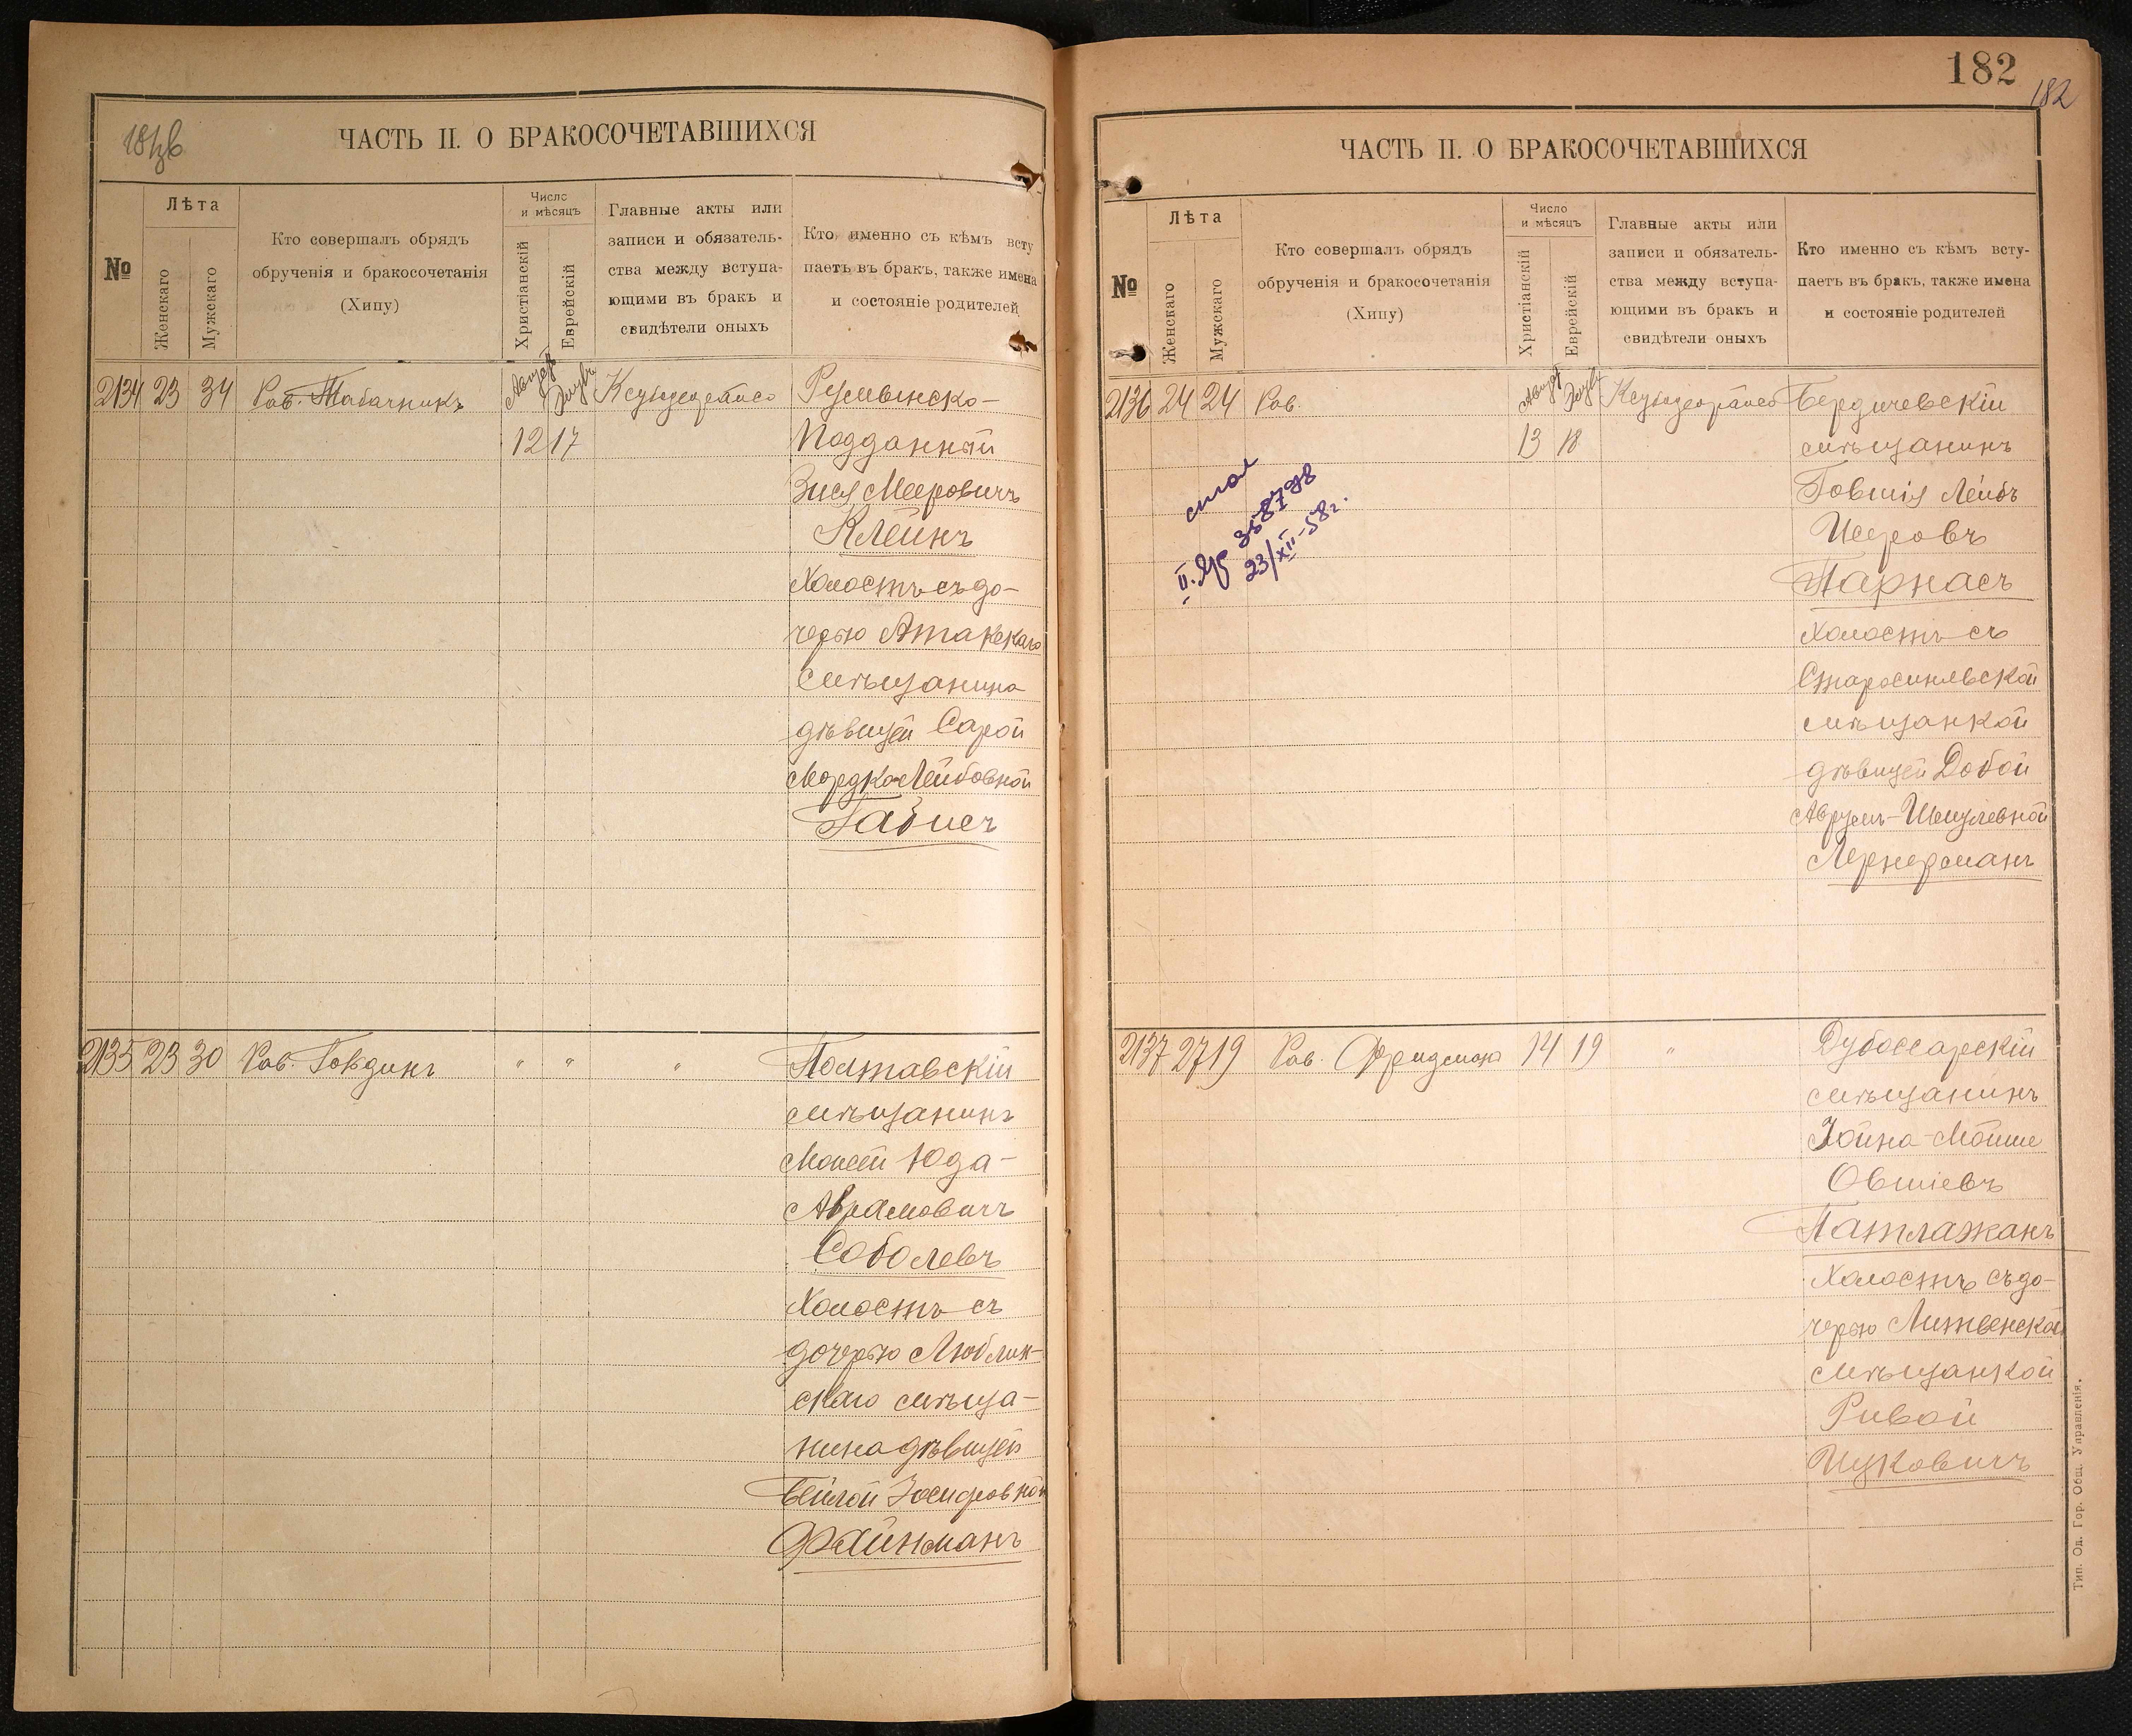 ЧАСТЬ II. О БРАКОСОЧЕТАВШИХСЯ
№
Лѣта
Женскаго
Мужскаго
Кто совершалъ обрядъ
обрученія и бракосочетанія
(Хипу)
Число
и мѣсяцъ
Христіанскій
Еврейскій
Главные акты или
записи и обязатель-
ства между вступа-
ющими въ бракъ и
свидѣтели оныхъ
Кто именно съ кѣмъ всту
паетъ въ бракъ, также имена
и состояніе родителей
2134 23 34 Рав. Табачникъ
12 17
Румынско-
Подданный
Зися Мееровичъ
Клейнъ
Холостъ съ до-
черью Атакскаго
мѣщанина
дѣвицей Сарой
Мордко-Лейбовной
Габисъ
2135 23 30 Рав. Говдинъ " " "
Полтавскій
мѣщанинъ
Моисей Юда-
Аврамовичъ
Соболевъ
Холостъ съ
дочерью Люблин-
скаго мѣща-
нина дѣвицей
Бейлой Іосифовной
Файнманъ
182
182
ЧАСТЬ II. О БРАКОСОЧЕТАВШИХСЯ
№
Лѣта
Женскаго
Мужскаго
Кто совершалъ обрядъ
обрученія и бракосочетанія
(Хипу)
Число
и мѣсяцъ
Христіанскій
Еврейскій
Главные акты или
записи и обязатель-
ства между вступа-
ющими въ бракъ и
свидѣтели оныхъ
Кто именно съ кѣмъ всту-
паетъ въ бракъ, также имена
и состояніе родителей
2136 24 24 Рав.
13 18
23/XII-58г.
Бердичевскій
мѣщанинъ
Говшія Лейбъ
Исеровъ
Парнасъ
Холостъ съ
Старосинявской
мѣщанкой
дѣвицей Добой
Аврумъ-Шмулевной
Лернерманъ
2137 27 19 Рав. Фридманъ 14 19 "
Дубоссарскій
мѣщанинъ
Іойна-Мойше
Овшіевъ
Патлажанъ
Холостъ съ до-
черью Литвенской
мѣщанкой
Ривой
Ицковичъ
Тип. Од. Гор. Общ. Управленія.